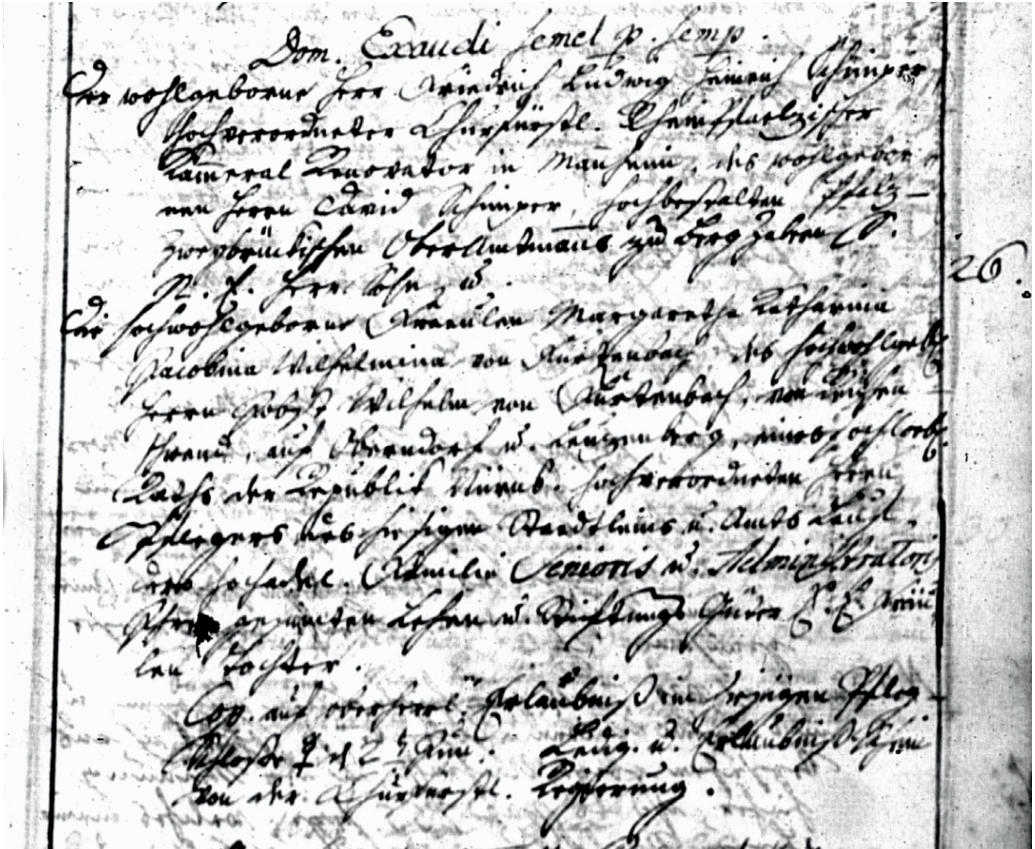 Dom. Exaudi semel p. semp.
Der wohlgeborne Herr Friedrich Ludwig Heinrich Schimper
Hochverordneter Churfürstl. Rheinpfaelzischer
Kam̄eral Renovator in Man̄heim, des wohlgebor
nen Herrn David Schimper, hochbestalten Pfalz-
zweybrückischen OberAmtman̄s zu Bergzabern
Herr Sohn, u.
Die hochwohlgeborne Fraeulen Margaretha Katharina
Jacobina Wilhelmina von Furtenbach, des hochwohlgeb.
Herrn Jobst Wilhelm von Furtenbach, von
auf Oberndorf u. eines hochloebl.
Raths der Republik Nürnb. hochverordneten Herrn
Pflegers des hiesigen Staedtleins u. Amts
dero hochadel. Familie Senioris u. Administratoris
Lehen u. Stiftungs Güter Fräu
len Tochter.
Cop. auf oberherrl. Erlaubniß im hiesigen Pfleg-
Schloße Jun. u. Erlaubniß Schein
von der Churfürstl. Regierung.
26.